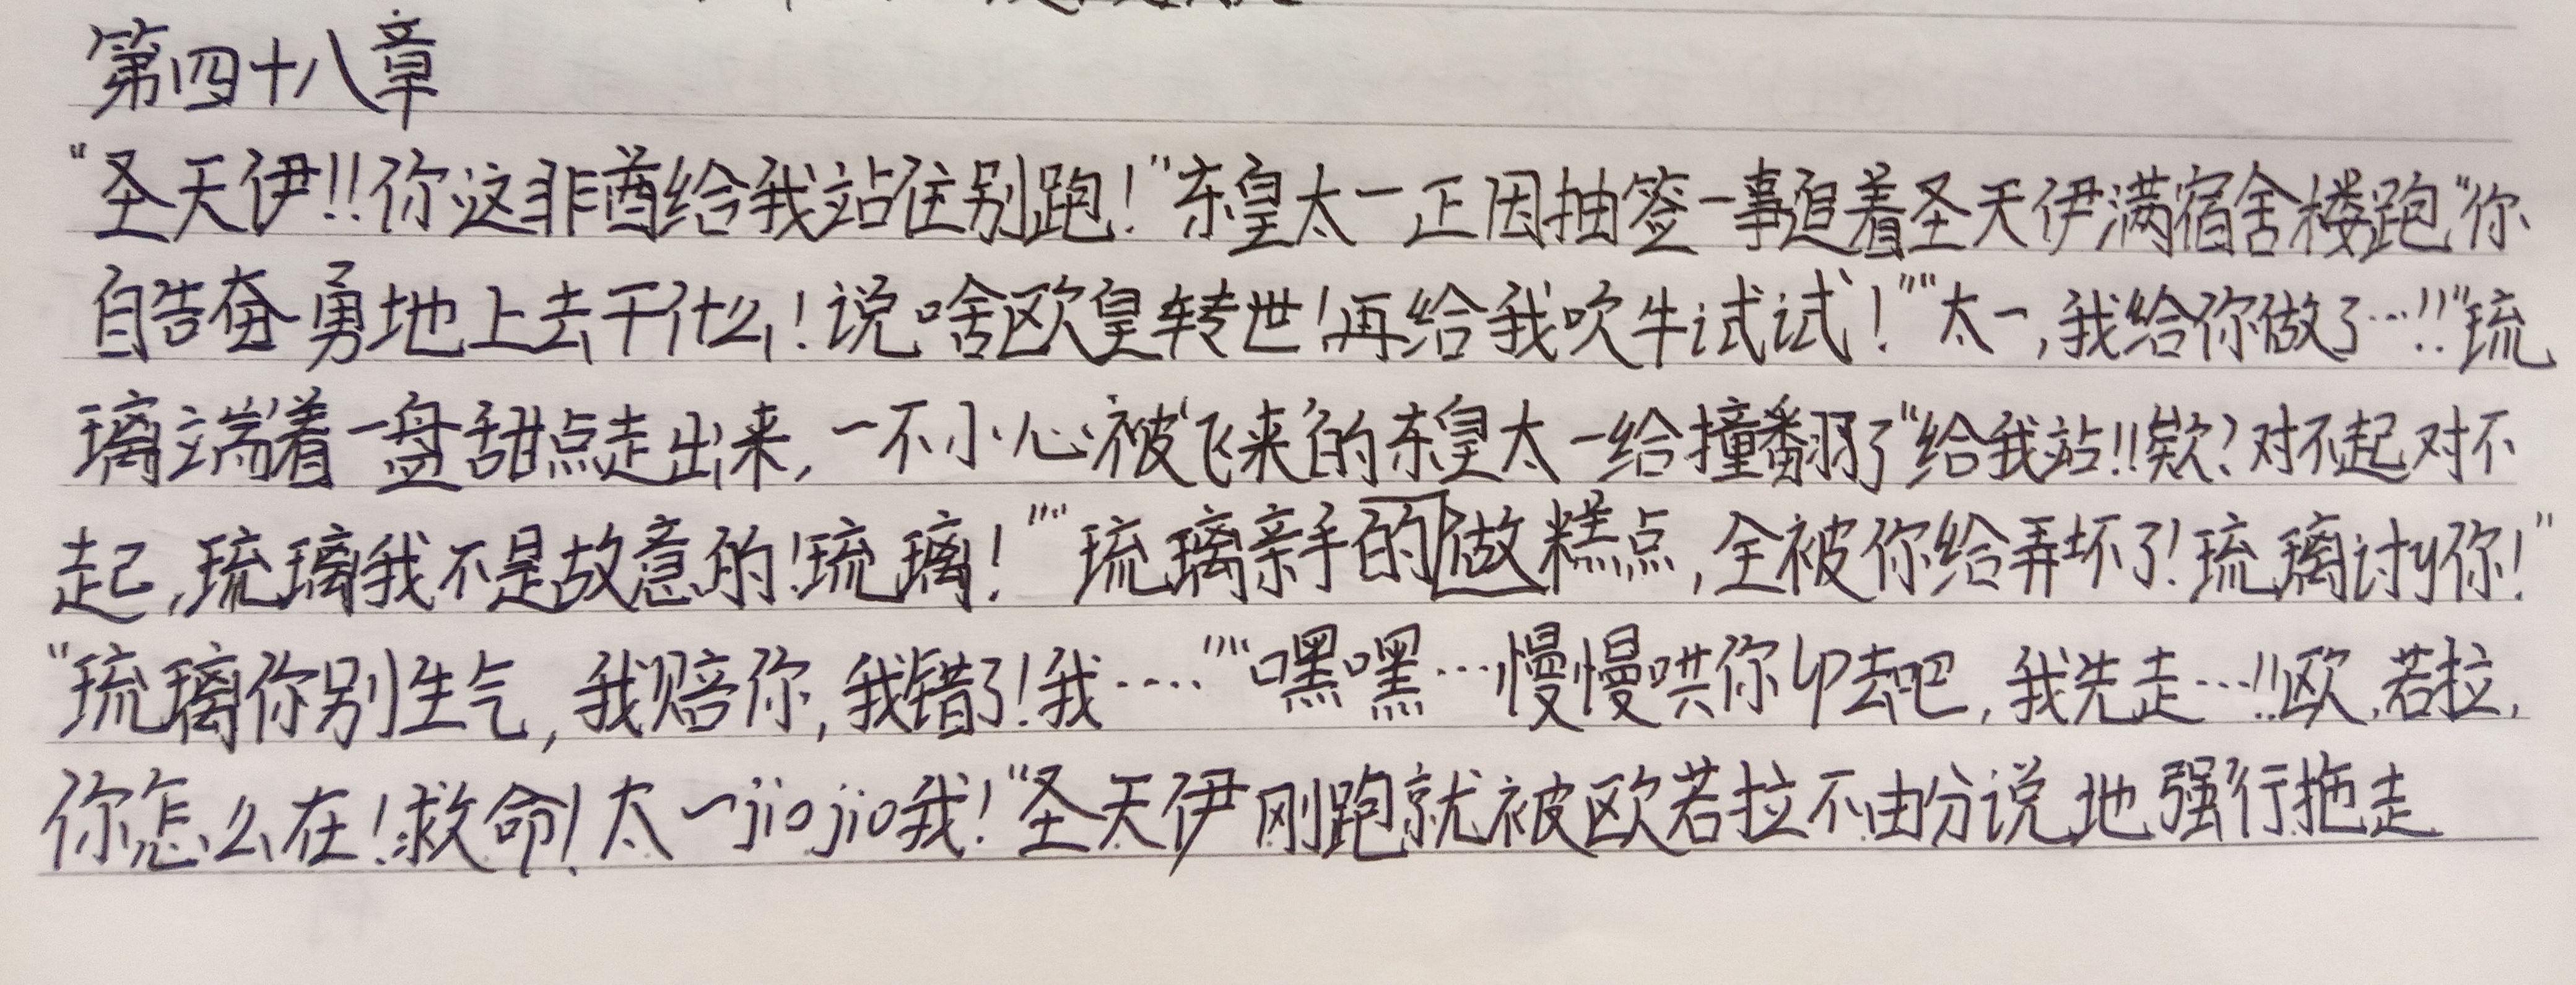 第四十八章
“圣天伊!!你这非酋给我站住别跑!”东皇太一正因抽签一事追着圣天伊满宿舍楼跑“你
自告奋勇地上去干什么!说啥欧皇转世!再给我吹牛试试!”“太一,我给你做了…!!”琉
璃端着一盘甜点走出来,一不小心被‘飞来’的东皇太一给撞翻了“给我站!!欸?对不起对不
起,琉璃我不是故意的!琉璃!”“琉璃亲手的做糕点,全被你给弄坏了!琉璃讨y你!”
“琉璃你别生气,我赔你,我错了!我….”“嘿嘿…慢慢哄你lp去吧,我先走…!!欧,若拉,
你怎么在!救命!太一jiojio我!“圣天伊刚跑就被欧若拉不由分说地强行拖走